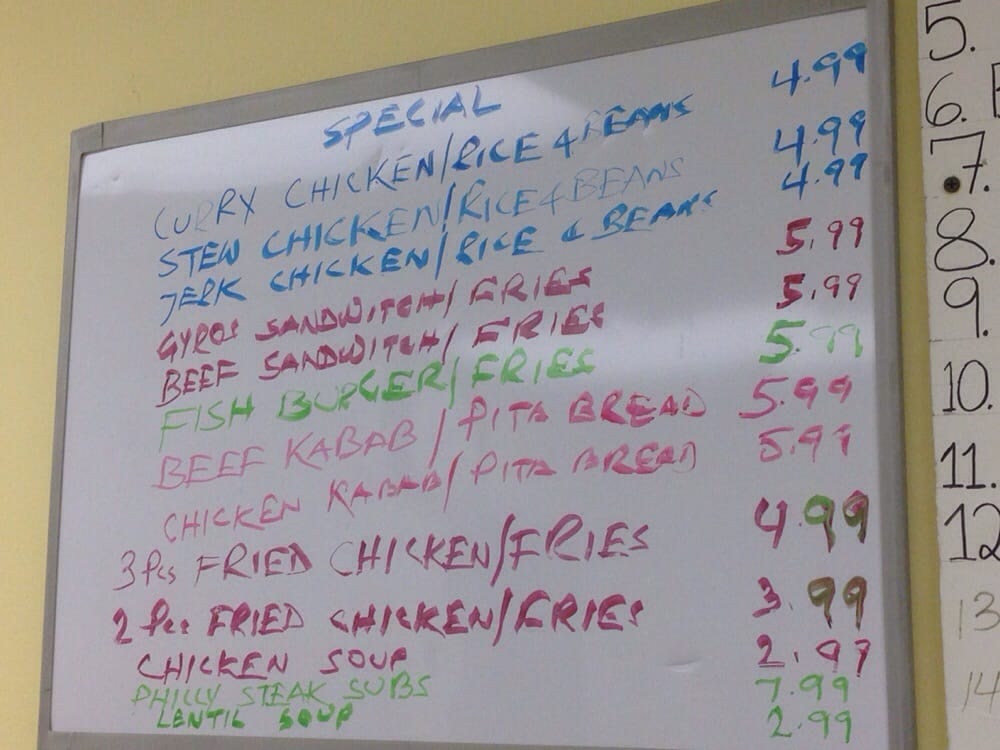 SPECIAL
CURRY CHICKEN/RICE & BEANS 4.99
STEW CHICKEN/RICE & BEANS 4.99
JERK CHICKEN/RICE & BEANS 4.99
GYROS SANDWITCH/FRIES 5.99
BEEF SANDWITCH/FRIES 5.99
FISH BURGER/FRIES 5.99
BEEF KABAB/PITA BREAD 5.99
CHICKEN KABAB/PITA BREAD 5.99
3 Pcs FRIED CHICKEN/FRIES 4.99
2 Pcs FRIED CHICKEN/FRIES 3.99
CHICKEN SOUP 2.99
PHILLY STEAK SUBS 7.99
LENTIL SOUP 2.99
5.
6.
7.
8.
9.
10.
11.
12
13
14